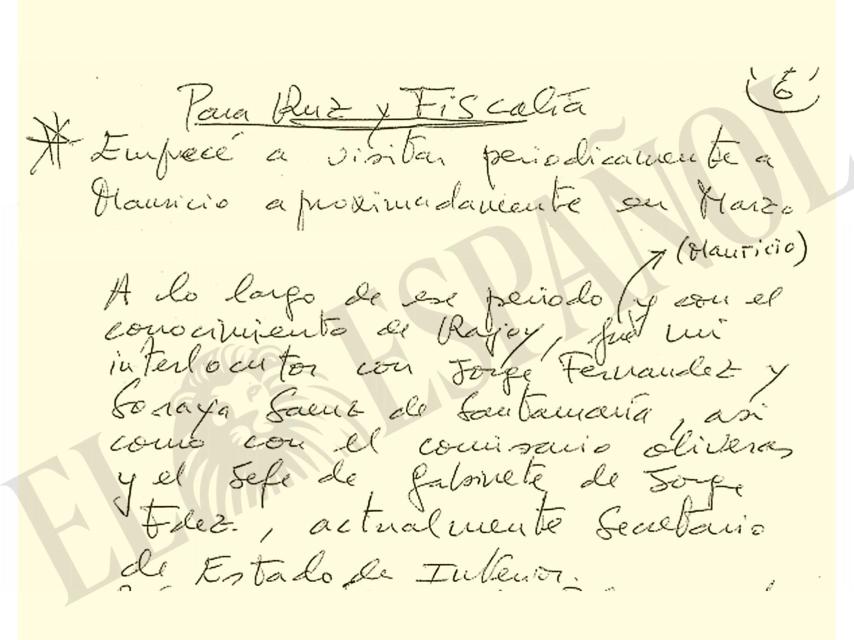 '6'
Para Ruz y Fiscalía
* Empecé a visitar periodicamente a
Mauricio aproximadamente en Marzo
(Mauricio)
A lo largo de ese periodo y con el
conocimiento de Rajoy, fué mi
interlocutor con Jorge Fernandez y
Soraya Saenz de Santamaría, asi
como con el comisario oliveras
y el Jefe de gabinete de Jorge
Fdez., actualmente Secretario
de Estado de Interior.
EL ESPAÑOL